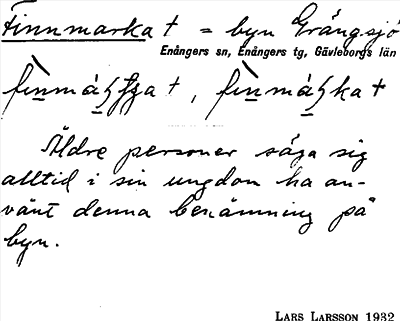 Finnmarka † = byn Grängsjö
Enångers sn, Enångers tg, Gävleborgs län
Äldre personer säga sig
alltid i sin ungdom ha an-
vänt denna benämning på
byn.
LARS LARSSON 1932